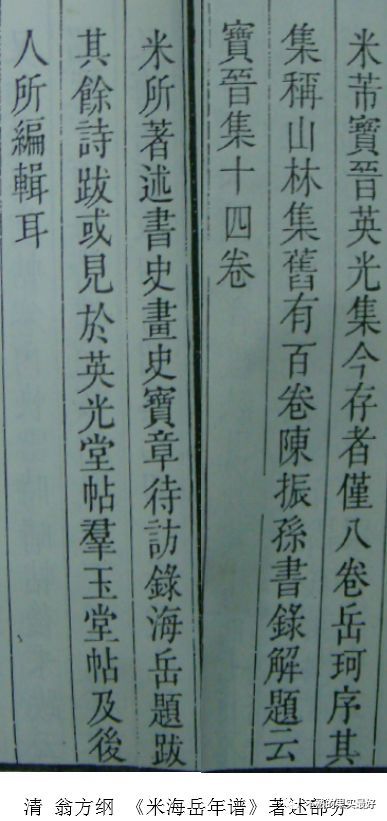 米芾寶晉英光集今存者僅八卷岳珂序其
集稱山林集舊有百卷陳振孫書錄解題云
寶晉集十四卷
米所著述書史畫史寶章待訪錄海岳題跋
其餘詩跋或見於英光堂帖羣玉堂帖及後
人所編輯耳
清 翁方纲 《米海岳年谱》著述部分